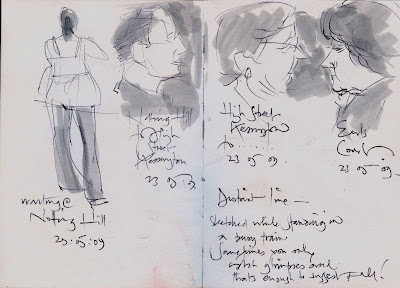 waiting @
Notting Hill
23:05:09
Notting Hill
to High
Street
Kensington
23 05:
High Street
Kensington
to ........
23 05 09
Earls
Court
23 05 09
District line —
sketched while standing on
a busy train
Sometimes you only
catch glimpses and
that's enough to suggest